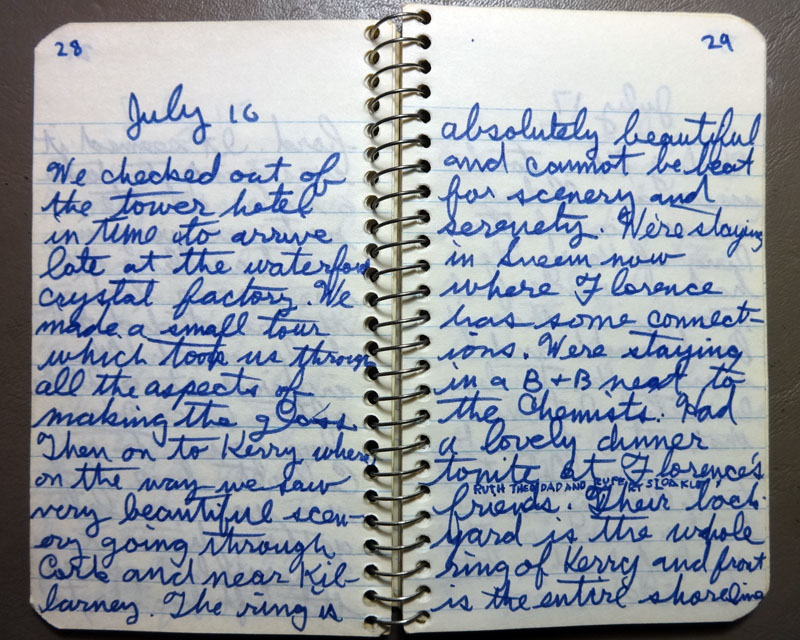 28
July 16
We checked out of
the tower hotel
in time to arrive
late at the waterford
crystal factory. We
made a small tour
which took us through
all the aspects of
making the glass
Then on to Kerry where
on the way we saw
very beautiful scen-
ery going through
Cork and near Kil-
larney. The ring is
29
absolutely beautiful
and cannot be beat
for scenery and
serenety. We're staying
in Sneem now
where Florence
has some connect-
ions. Were staying
in a B+B next to
the Chemists. Had
a lovely dinner
tonite at Florence's
RUTH THEO DAD AND
friends. Their back
yard is the whole
ring of Kerry and front
is the entire shoreline